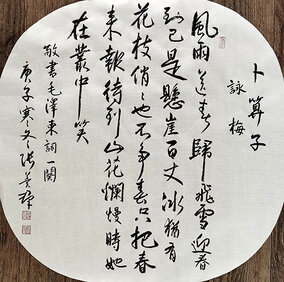 卜算子
詠梅
風雨送春歸飛雪迎春
到已是懸崖百丈冰猶有
花枝俏〻也不爭春只把春
來報待到山花爛熳時她
在叢中笑
敬書毛澤東詞一闋
庚子寒冬